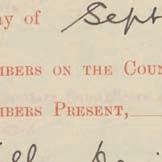 ay of Sept
MBERS ON THE COUN
MBERS PRESENT,